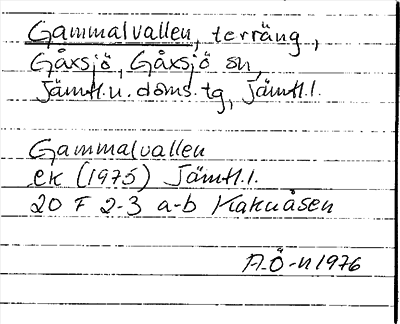 Gammalvallen, terräng,
Gåxsjö, Gåxsjö sn,
Jämtl.n. doms. tg, Jämtl.l.
Gammalvallen
ek (1975) Jämtl.l.
20 F 2-3 a-b Kakuåsen
A-Ö-n 1976